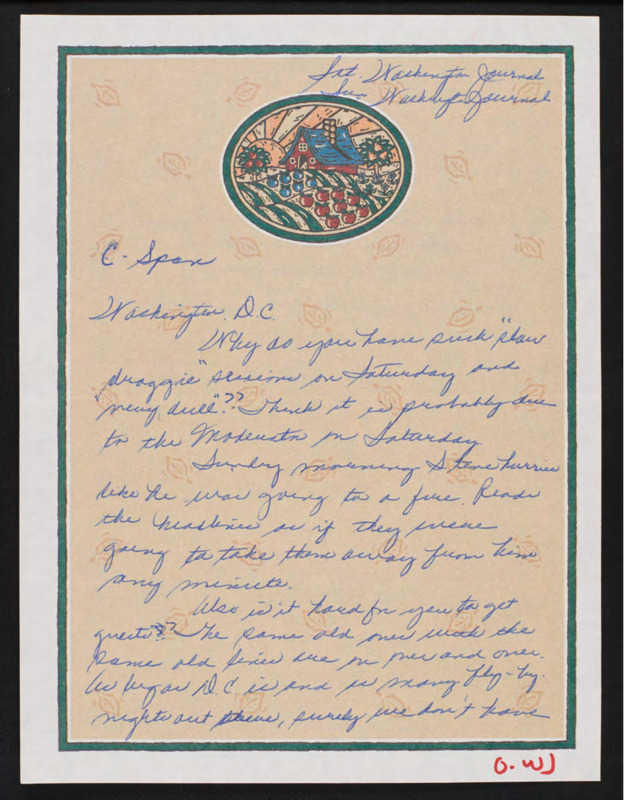 Sat. Washington Journal
Sun Washington Journal
C-Span
Washington, D.C.
Why do you have such "slow
draggie" sessions on Saturday and
"very dull"?? Think it is probably due
to the Moderator on Saturday.
Sunday morning Steve hurries
like he was going to a fire. Reads
the headlines as if they were
going to take them away from him
any minute.
Also is it hard for you to get
guests?? The same old ones with the
same old lines are on over and over.
As large as D.C. is and so many fly-by-
nights out there, surely we don't have
O. WJ